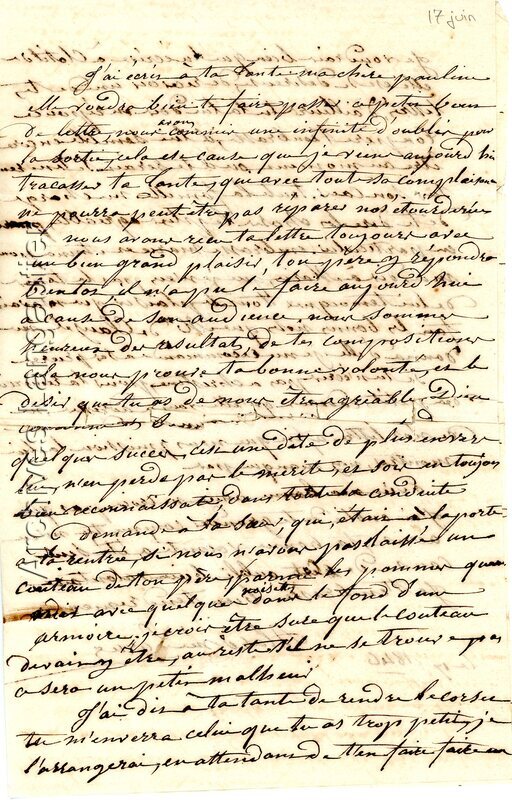 17 juin
J'ai écris à ta tante ma chère pauline
elle voudra bien te faire passer ce petit bout
de lettre, nous avons commis une infinité d'oublis pour
la sortie, cela est cause que je viens aujourd'hui
tracasser ta tante, qui avec toute sa complaisance
ne pourra peut être pas réparer nos étourderies
nous avons reçu ta lettre toujours avec
un bien grand plaisir, ton père y répondra
bientot, il n'a pu le faire aujourd'hui
cause de son audience, nous sommes
heureux des resultats de tes compositions
cela nous prouve ta bonne volonté, et le
desir que tu as de nous être agréable Dieu
quelque succès, c'est une dête de plus envers
lui, n'en perde pas le merite, et sois en toujours
bien reconnaissate dans ta conduite
Demande à la Sœur, qui était à la porte
a ta rentrée, si nous n'avons pas laissé un
couteau de ton père, parmi les pommes
avec quelques noisettes dans le fond d'une
armoire, je crois être sure que le couteau
devait y être, au reste s'il ne se trouve pas
ce sera un petit malheur,
J'ai dis à ta tante de rendre le corset
tu m'enverra celui que tu as trop petit, je
l'arrangerai, en attendant de t'en faire faire un
Archives Passerelles